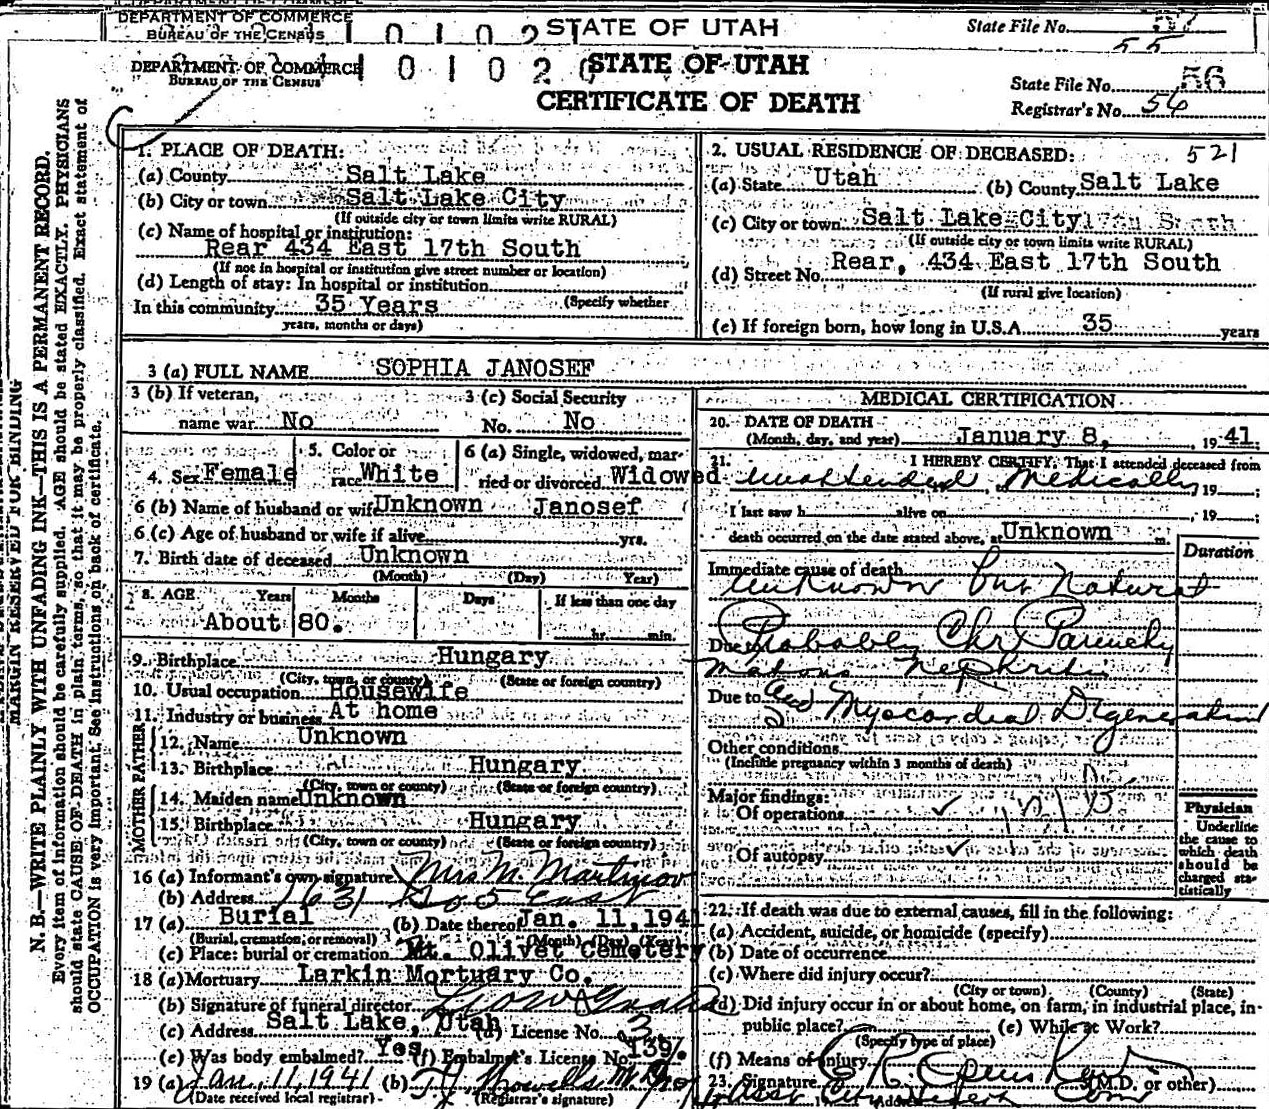 DEPARTMENT OF COMMERCE
BUREAU OF THE CENSUS
0 1 0 2 1
STATE OF UTAH
State File No.
55
DEPARTMENT OF COMMERCE
BUREAU OF THE CENSUS
0 1 0 2 0
STATE OF UTAH
CERTIFICATE OF DEATH
State File No. 56
Registrar's No. 56
MARGIN RESERVED FOR BINDING
N. B.—WRITE PLAINLY WITH UNFADING INK—THIS IS A PERMANENT RECORD.
Every item of information should be carefully supplied. AGE should be stated EXACTLY. PHYSICIANS
should state CAUSE OF DEATH in plain terms, so that it may be properly classified. Exact statement of
OCCUPATION is very important. See instructions on back of certificate.
1. PLACE OF DEATH:
(a) County Salt Lake
(b) City or town Salt Lake City
(If outside city or town limits write RURAL)
(c) Name of hospital or institution:
Rear 434 East 17th South
(If not in hospital or institution give street number or location)
(d) Length of stay: In hospital or institution
In this community 35 Years (Specify whether
years, months or days)
2. USUAL RESIDENCE OF DECEASED: 521
(a) State Utah (b) County Salt Lake
(c) City or town Salt Lake City
(If outside city or town limits write RURAL)
(d) Street No. Rear, 434 East 17th South
(If rural give location)
(e) If foreign born, how long in U.S.A. 35 years
3 (a) FULL NAME SOPHIA JANOSEF
3 (b) If veteran, name war No
3 (c) Social Security No. No
4. Sex Female
5. Color or race White
6 (a) Single, widowed, married or divorced Widowed
6 (b) Name of husband or wife Unknown Janosef
6 (c) Age of husband or wife if alive yrs.
7. Birth date of deceased Unknown
(Month) (Day) Year)
8. AGE Years Months Days If less than one day
About 80. hr. min.
9. Birthplace Hungary
(City, town, or county) (State or foreign country)
10. Usual occupation Housewife
11. Industry or business At home
FATHER
12. Name Unknown
13. Birthplace Hungary
(City, town or county) (State or foreign country)
MOTHER
14. Maiden name Unknown
15. Birthplace Hungary
(City, town or county) (State or foreign country)
16 (a) Informant's own signature Mrs M. Martinov
(b) Address 1631 So 5 East
17 (a) Burial (b) Date thereof Jan. 11, 1941
(Burial, cremation, or removal) (Month) (Day) (Year)
(c) Place: burial or cremation Mt. Olivet Cemetery
18 (a) Mortuary Larkin Mortuary Co.
(b) Signature of funeral director
(c) Address Salt Lake, Utah (d) License No. 3
(e) Was body embalmed? Yes (f) Embalmer's License No. 139.
19 (a) Jan. 11, 1941 (b)
(Date received local registrar) (Registrar's signature)
MEDICAL CERTIFICATION
20. DATE OF DEATH
(Month, day, and year) January 8, 1941.
21. I HEREBY CERTIFY, That I attended deceased from
Unattended Medically, 19 ;
I last saw h alive on , 19 ;
death occurred on the date stated above, at Unknown m.
Duration
Immediate cause of death
Unknown but Natural
Due to Probably Chr Parenchy
matous Nephritis
Due to and Myocardial Degeneration
Other conditions
(Include pregnancy within 3 months of death)
Major findings:
Of operations
Of autopsy
Physician
Underline
the cause to
which death
should be
charged sta-
tistically
22. If death was due to external causes, fill in the following:
(a) Accident, suicide, or homicide (specify)
(b) Date of occurrence
(c) Where did injury occur?
(City or town) (County) (State)
(d) Did injury occur in or about home, on farm, in industrial place, in-
public place? (e) While at Work?
(Specify type of place)
(f) Means of injury
23. Signature (M.D. or other)